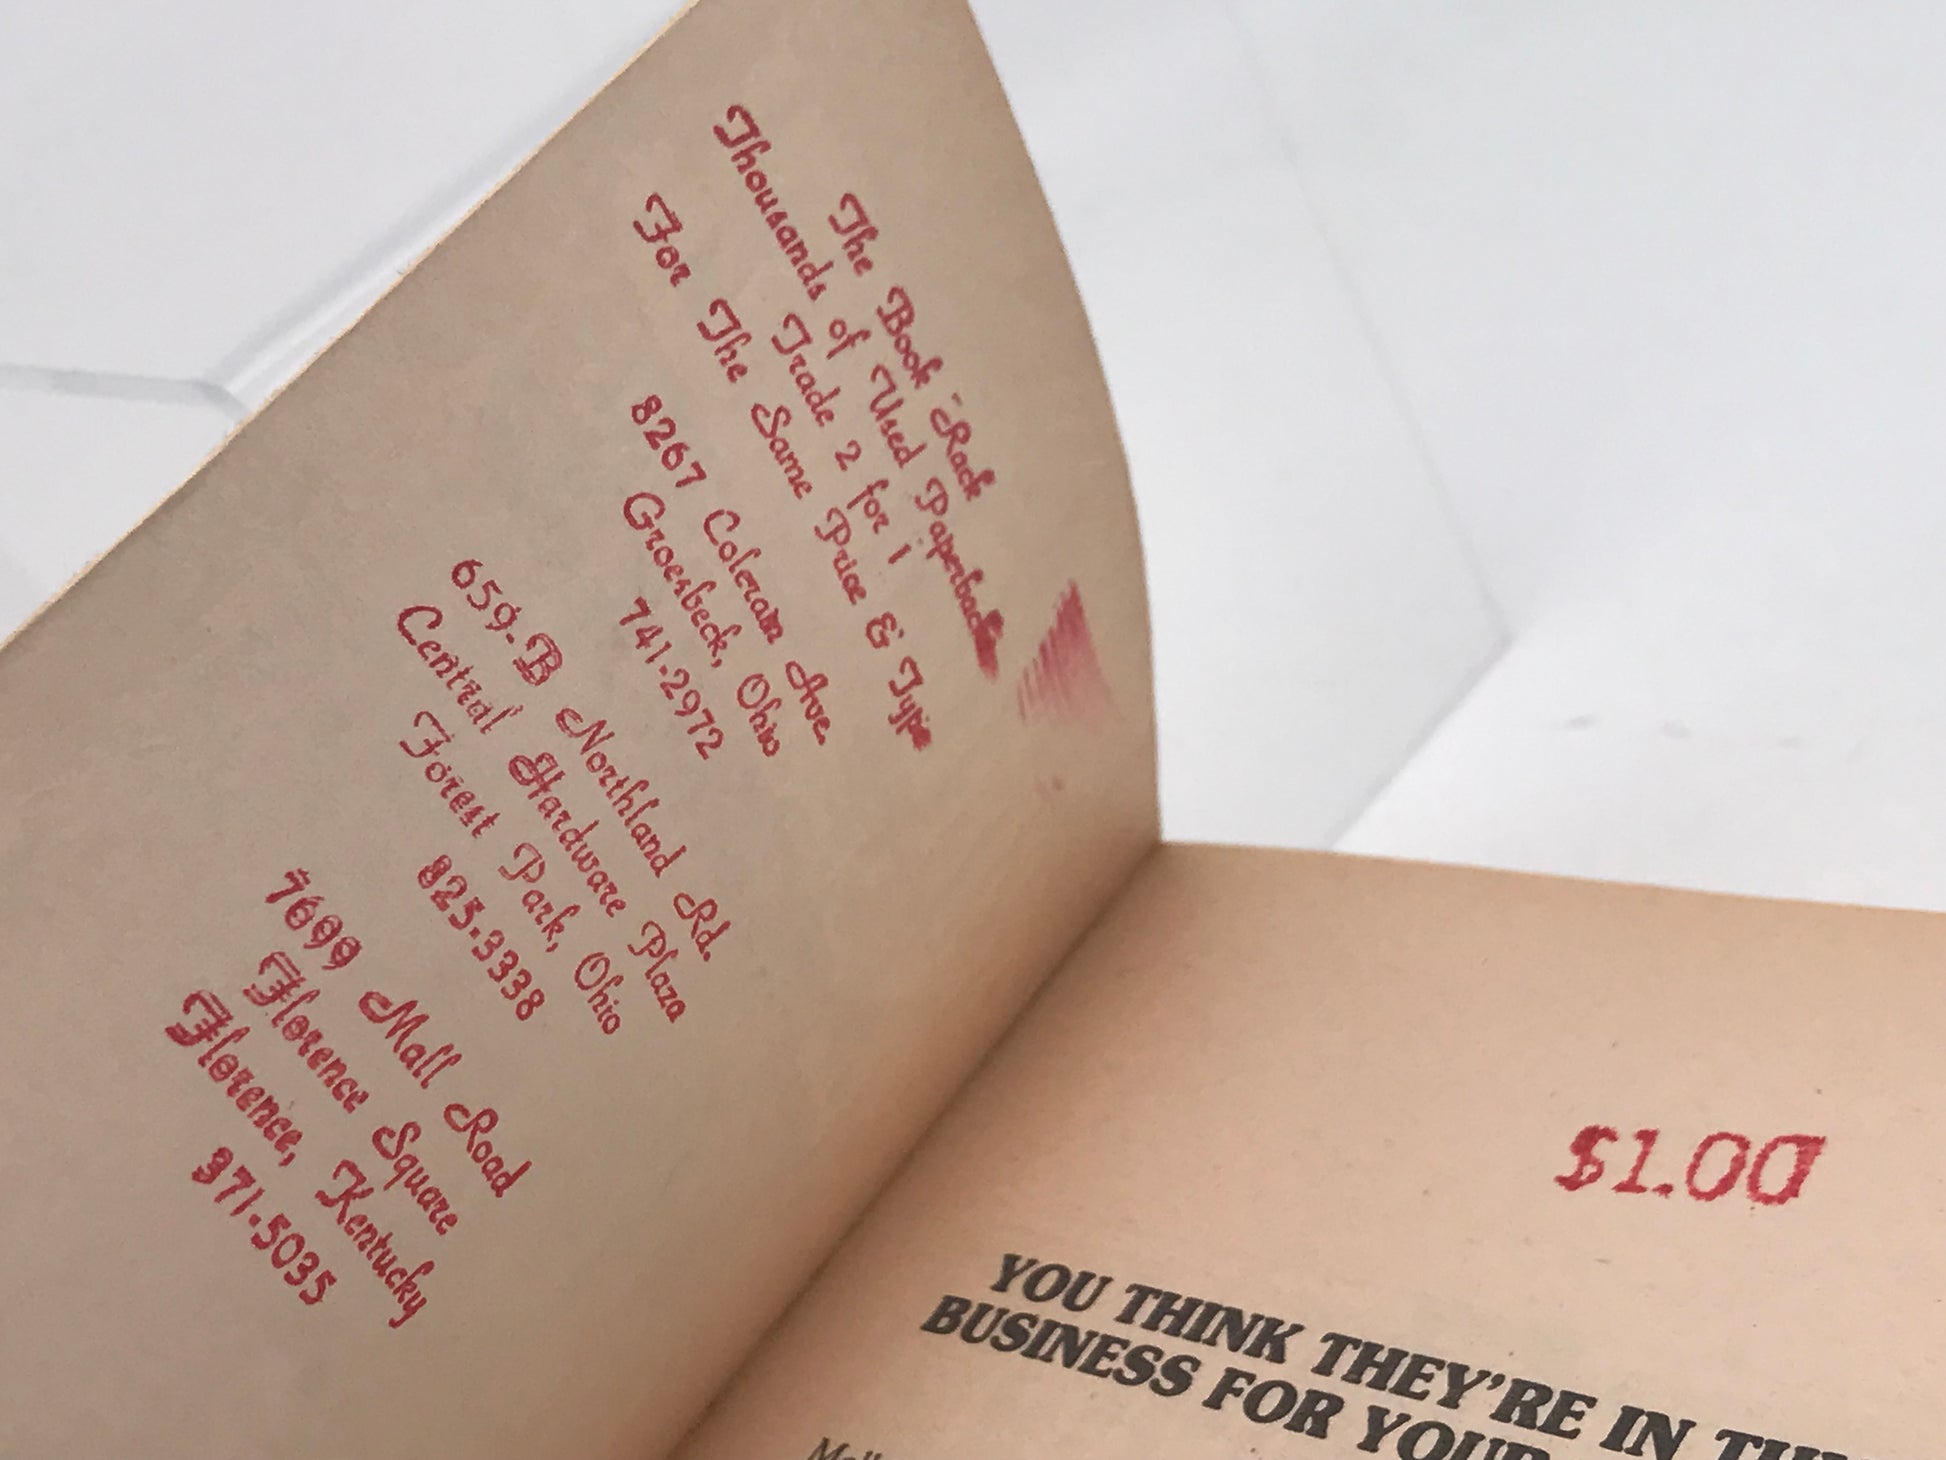 The Book Rack
Thousands of Used Paperbacks
Trade 2 for 1
For The Same Price & Type
8267 Colerain Ave.
Groesbeck, Ohio
741-2972
659-B Northland Rd.
Central Hardware Plaza
Forest Park, Ohio
825-3338
7699 Mall Road
Florence Square
Florence, Kentucky
371-5035
$1.00
YOU THINK THEY'RE IN
BUSINESS FOR YOUR